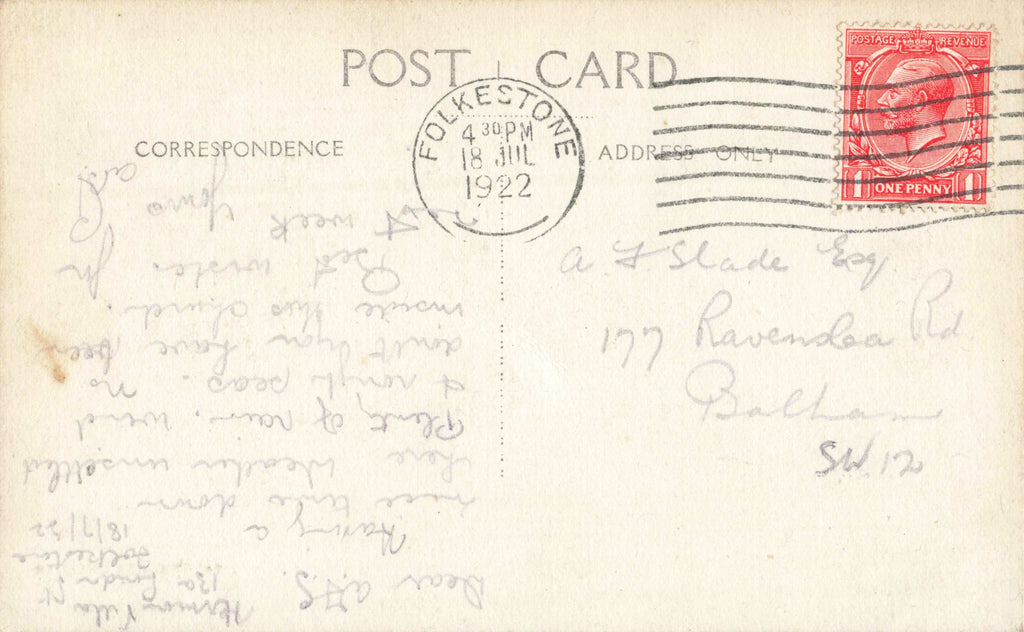 POST CARD
CORRESPONDENCE
ADDRESS ONLY
FOLKESTONE
4 30 PM
18 JUL
1922
POSTAGE REVENUE
1 ONE PENNY 1
A F Slade Esq
177 Ravenslea Rd
Balham
SW 12
Villa
13a
Folkestone
18/7/22
Dear
Having a
nice time down
here Weather unsettled
Plenty of rain, wind
& rough seas. No
doubt you have been
inside this church.
Best wishes.
next week
Yours